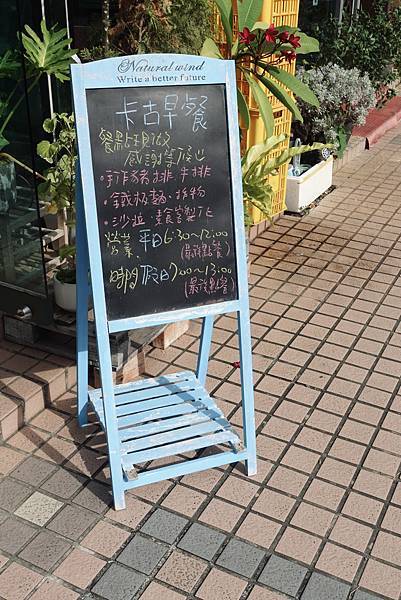 Natural wind
Write a better future
卡古早餐
餐點現做
感謝等候
・手作豬排・牛排
・鐵板麵・炸物
・沙拉・素食製作
營業 平日6:30~12:00
(最後點餐)
時間 假日7:00~13:00
(最後點餐)